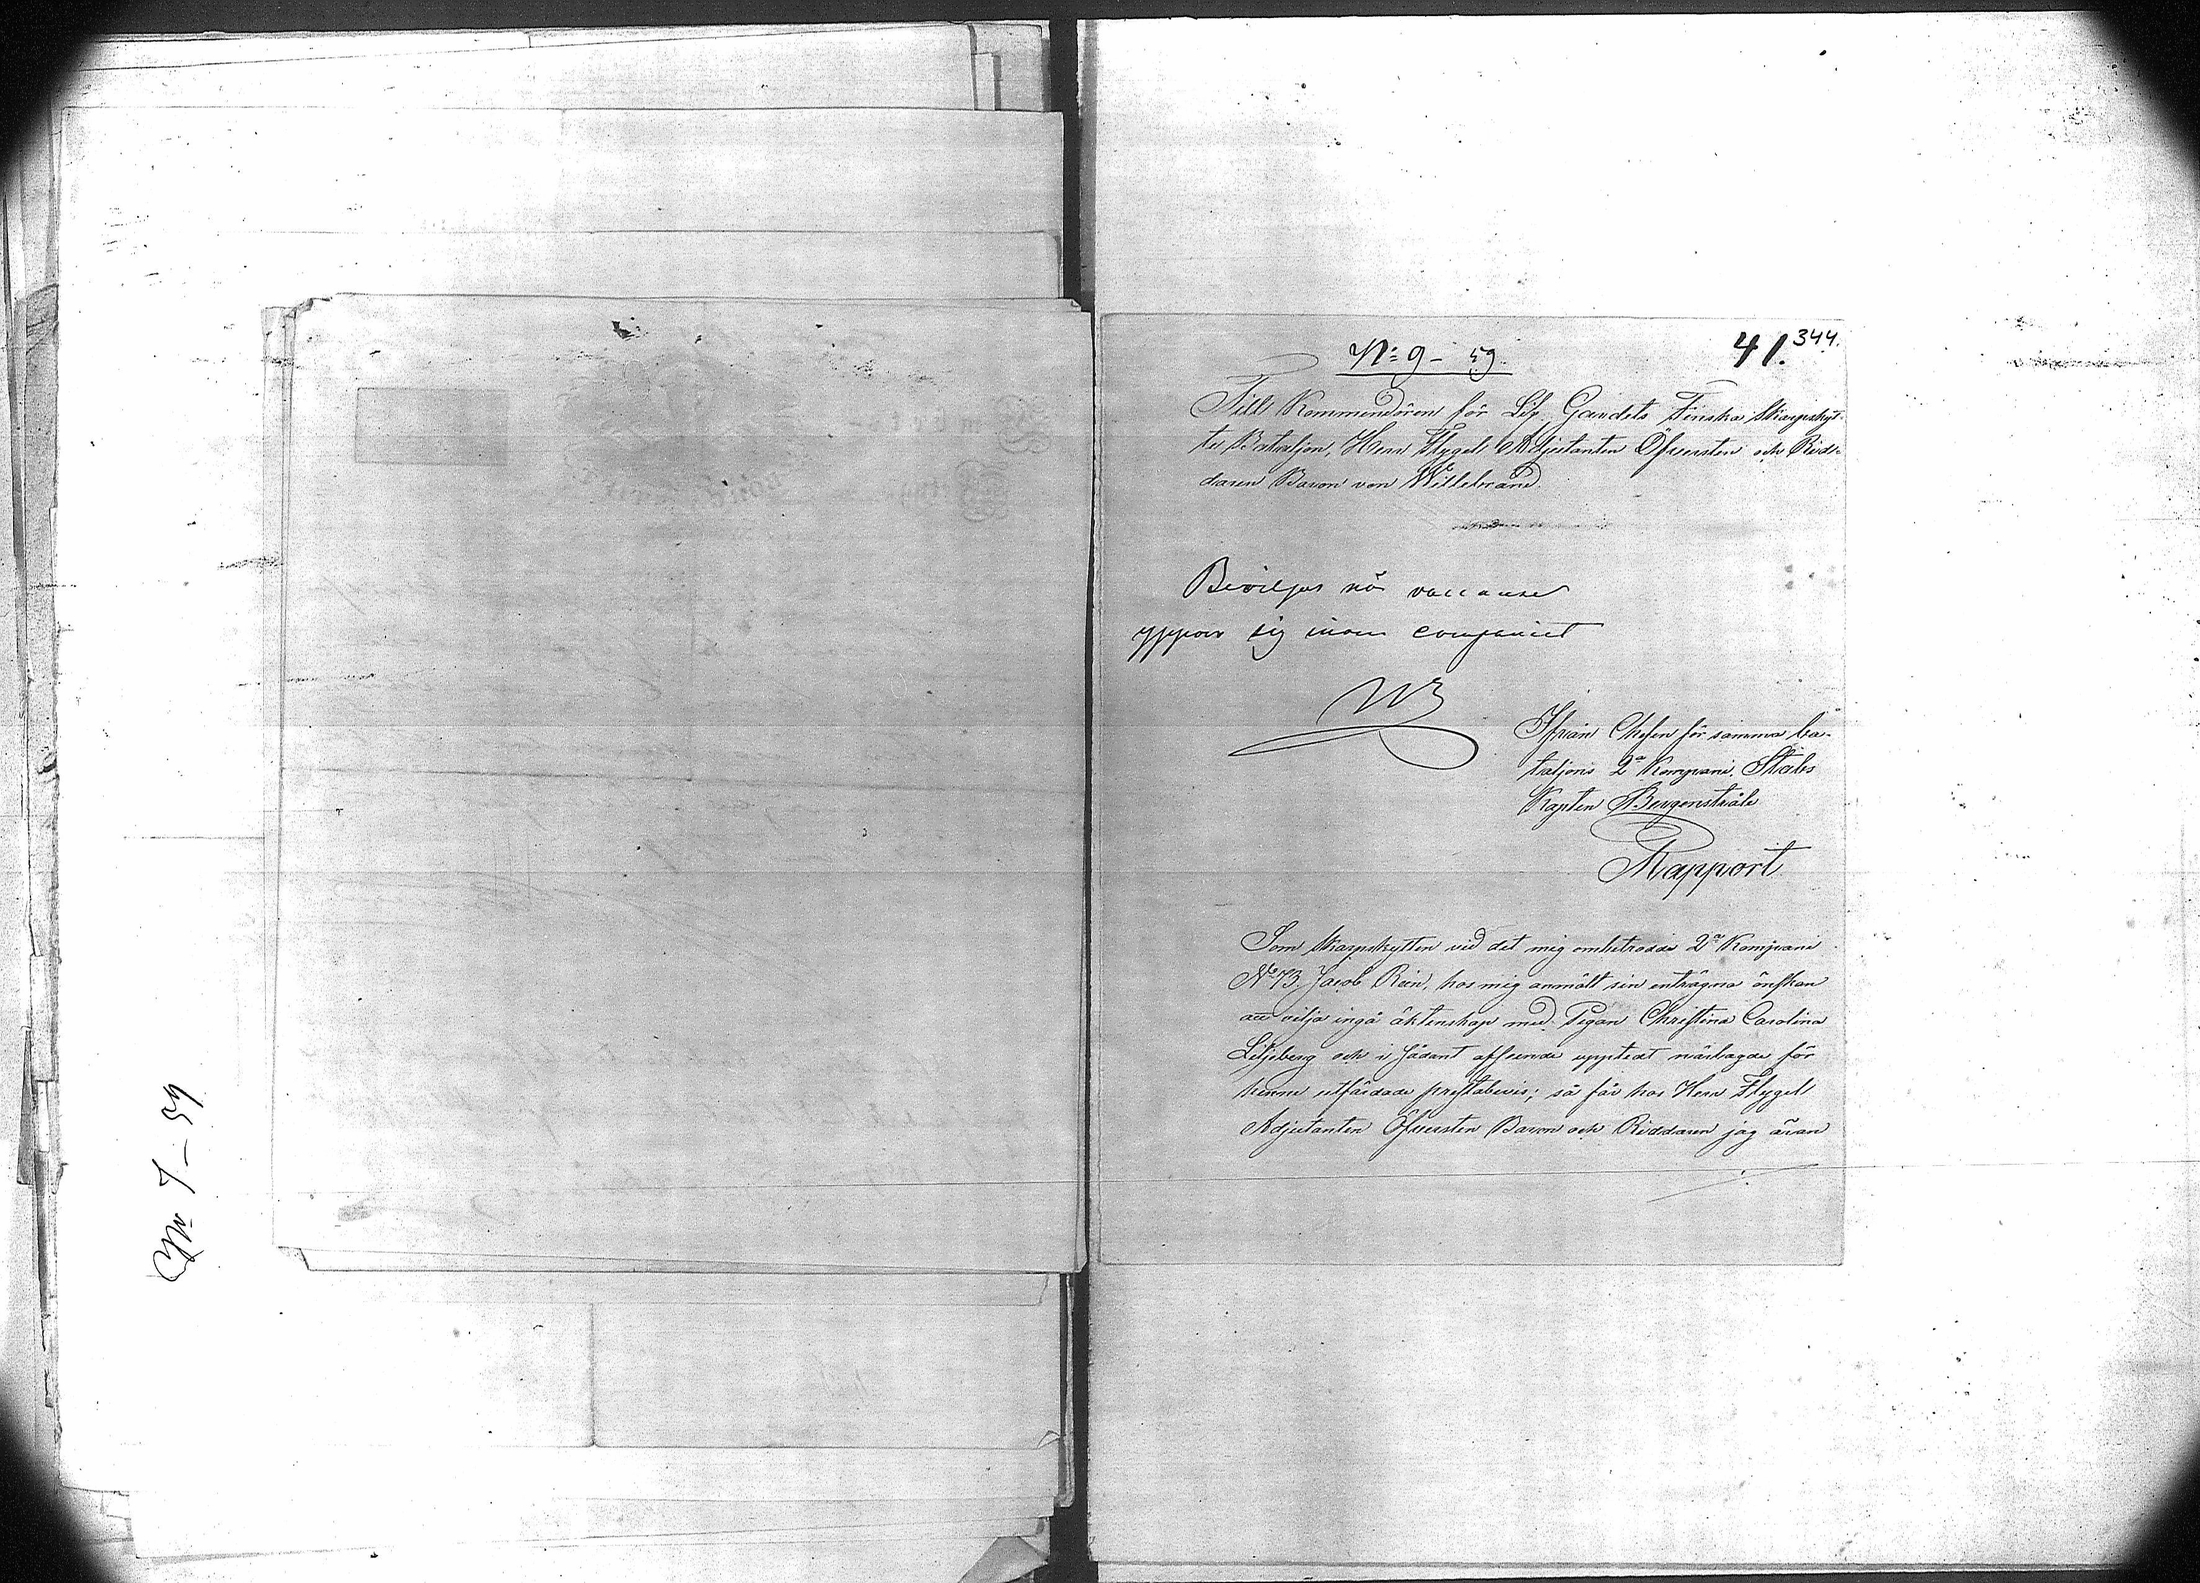 No 7 – 59
No 9 – 59.
41. 344.
Till Kommendören för Lif Gardets Finska Skarpskyt-
te Bataljon, Herr Flygel Adjutanten Öfversten och Rid-
daren Baron von Willebrand.
Beviljas när vaccance
yppar sig inom compagniet
WB
Ifrån Chefen för samma ba-
taljons 2a Kompani, Stabs
Kapten Bergenstråle
Rapport
Som Skarpskytten vid det mig ombetrodde 2a Kompani
No 73. Jacob Reen, hos mig anmält sin enträgna önskan
att vilja ingå äktenskap med Pigan Christina Carolina
Liljeberg och i sådant afseende upptedt närlagde för
henne utfärdade prestabevis; så får hos Herr Flygel
Adjutanten Öfversten Baron och Riddaren jag äran